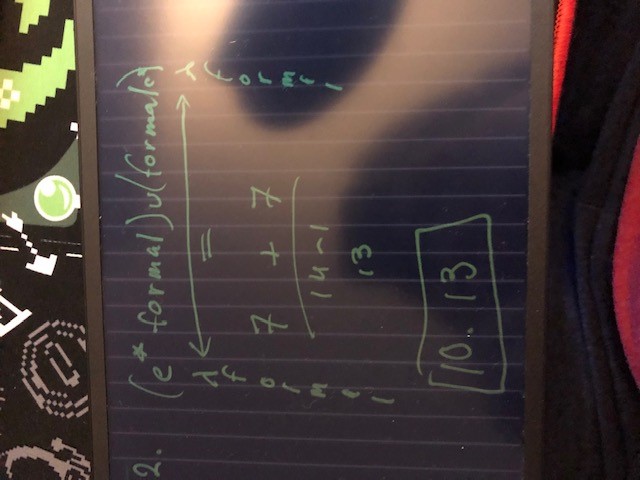 2. (e* formal)∪(formale*)
λ ← = → λ
f
o
r
m
a
l
f
o
r
m
a
l
7 + 7
14-1
13
10. 13